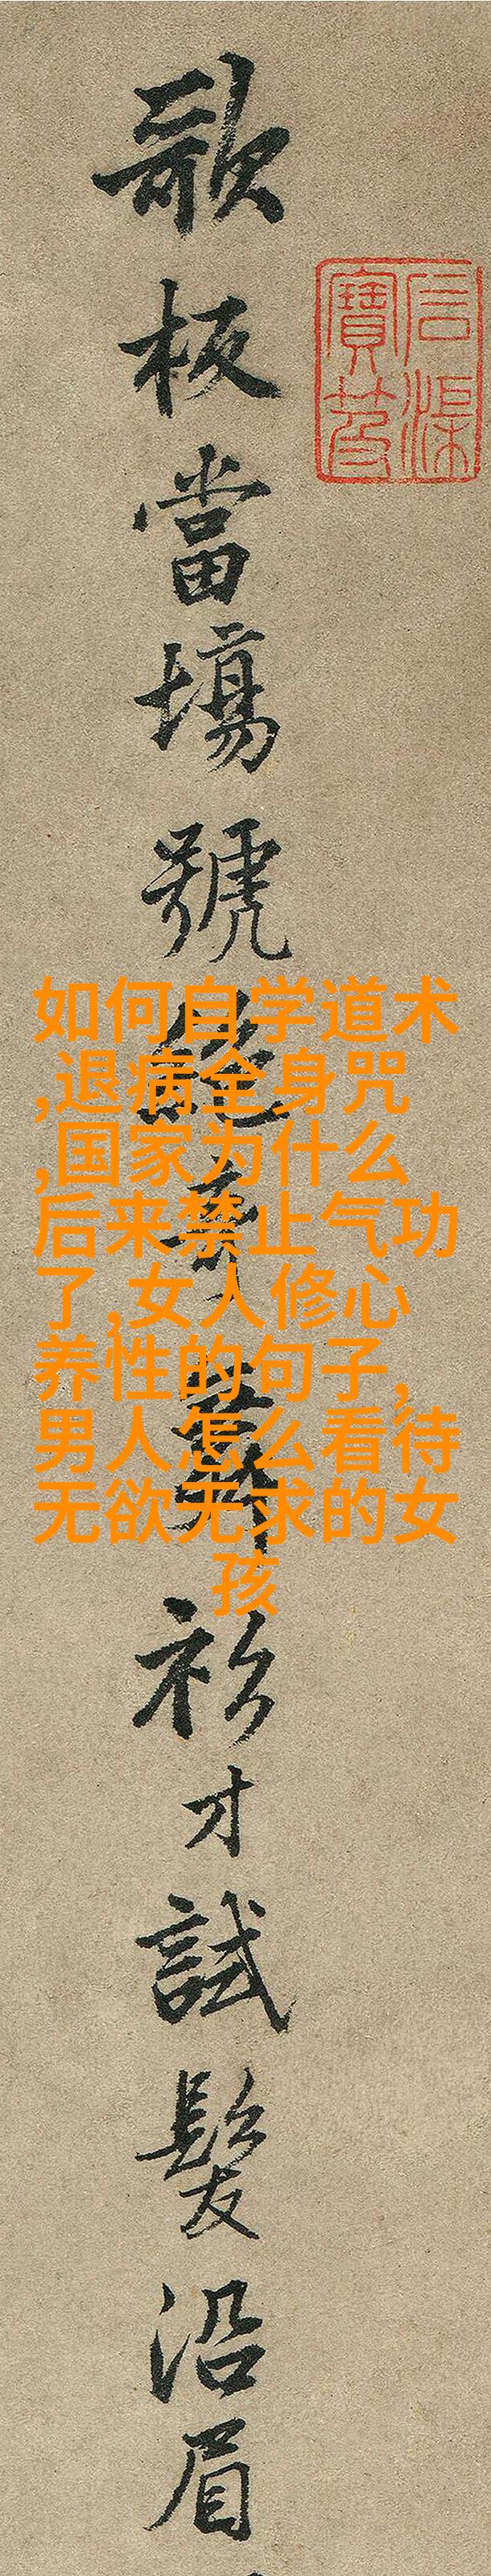 歌板當場號絕奇舞衫才試髮沿眉
石渠
寶笈
如何自学道术
,退病全身咒
,国家为什么
后来禁止气功
了,女人修心
养性的句子,
男人怎么看待
无欲无求的女
孩